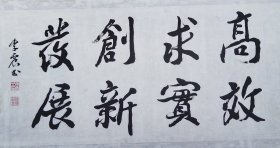 高效
求實
創新
發展